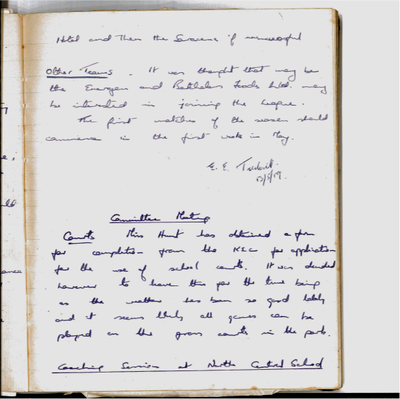 Hotel and then the Severne if unsuccessful
Other Teams. It was thought that may be
the Energen and Batchelor Foods Ltd. may
be interested in joining the league.
The first matches of the season should
commence in the first week in May.
E. E.
Committee Meeting
Courts Miss Hunt has obtained a form
for completion from the KEC for application
for the use of school courts. It was decided
however to leave this for the time being
as the weather has been so good lately
and it seems likely all games can be
played on the grass courts in the park.
Coaching Services at North Central School